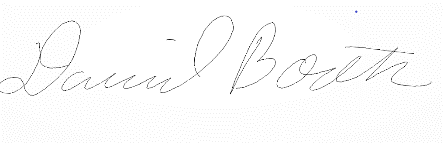 David Booth